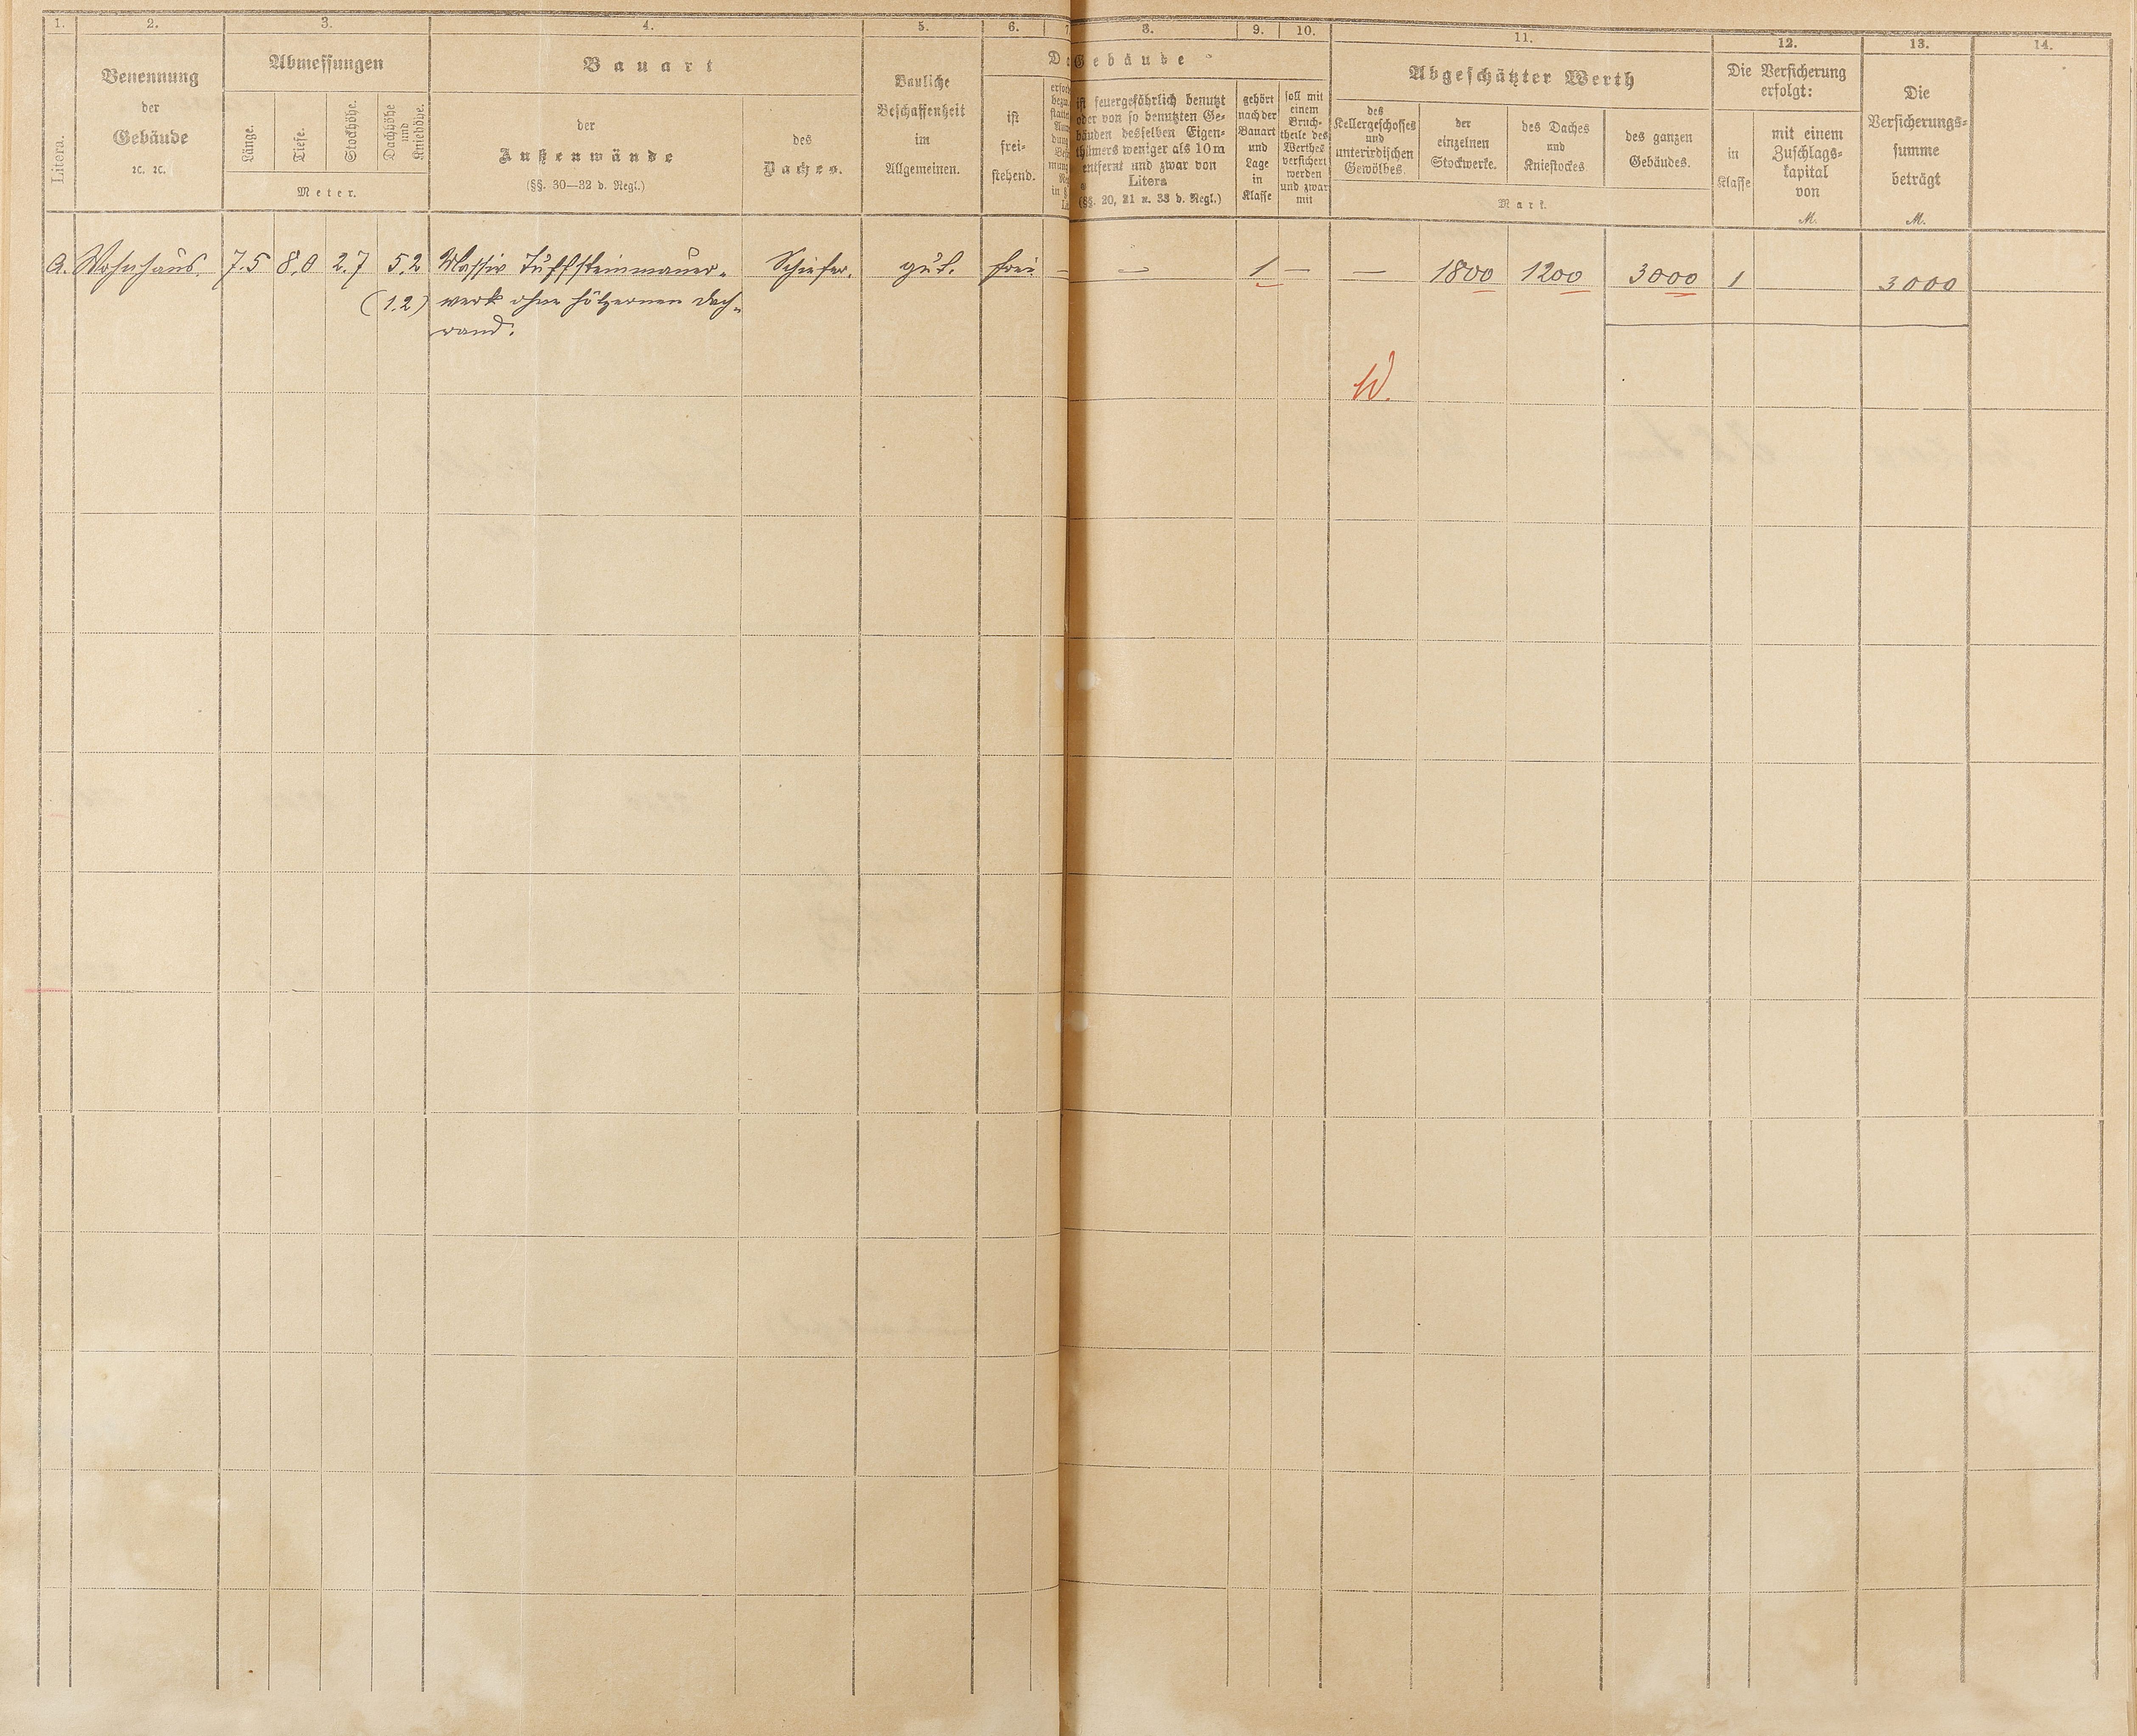 1. 2. 3. 4. 5. 6. 7. 8. 9. 10. 11. 12. 13. 14.
Litera.
Benennung
der
Gebäude
ꝛc. ꝛc.
Abmessungen
Länge.
Tiefe.
Stockhöhe.
Dachhöhe
und
Meter.
Bauart
der
Außenwände
(§§. 30—32 d. Regl.)
des
Daches.
Bauliche
Beschaffenheit
im
Allgemeinen.
Gebäude
ist
frei-
stehend.
ist feuergefährlich benutzt
oder von so benutzten Ge-
bäuden desselben Eigen-
thümers weniger als 10 m
entfernt und zwar von
Litera
(§§. 20, 21 u. 33 d. Regl.)
gehört
nach der
Bauart
und
Lage
in
Klasse
soll mit
einem
Bruch-
theile des
Werthes
versichert
werden
und zwar
mit
Abgeschätzter Werth
des
Kellergeschosses
und
unterirdischen
Gewölbes.
der
einzelnen
Stockwerke.
des Daches
und
Kniestockes
des ganzen
Gebäudes.
Mark.
Die Versicherung
erfolgt:
in
Klasse
mit einem
Zuschlags-
kapital
von
M.
Die
Versicherungs-
summe
beträgt
M.
a. Wohnhaus. 7.5 8.0 2.7 5.2 Massiv Tuffsteinmauer- Schiefer. gut. frei — — 1 — — 1800 1200 3000 1 3000
(1.2) werk ohne hölzernen Dach-
rand.
W.